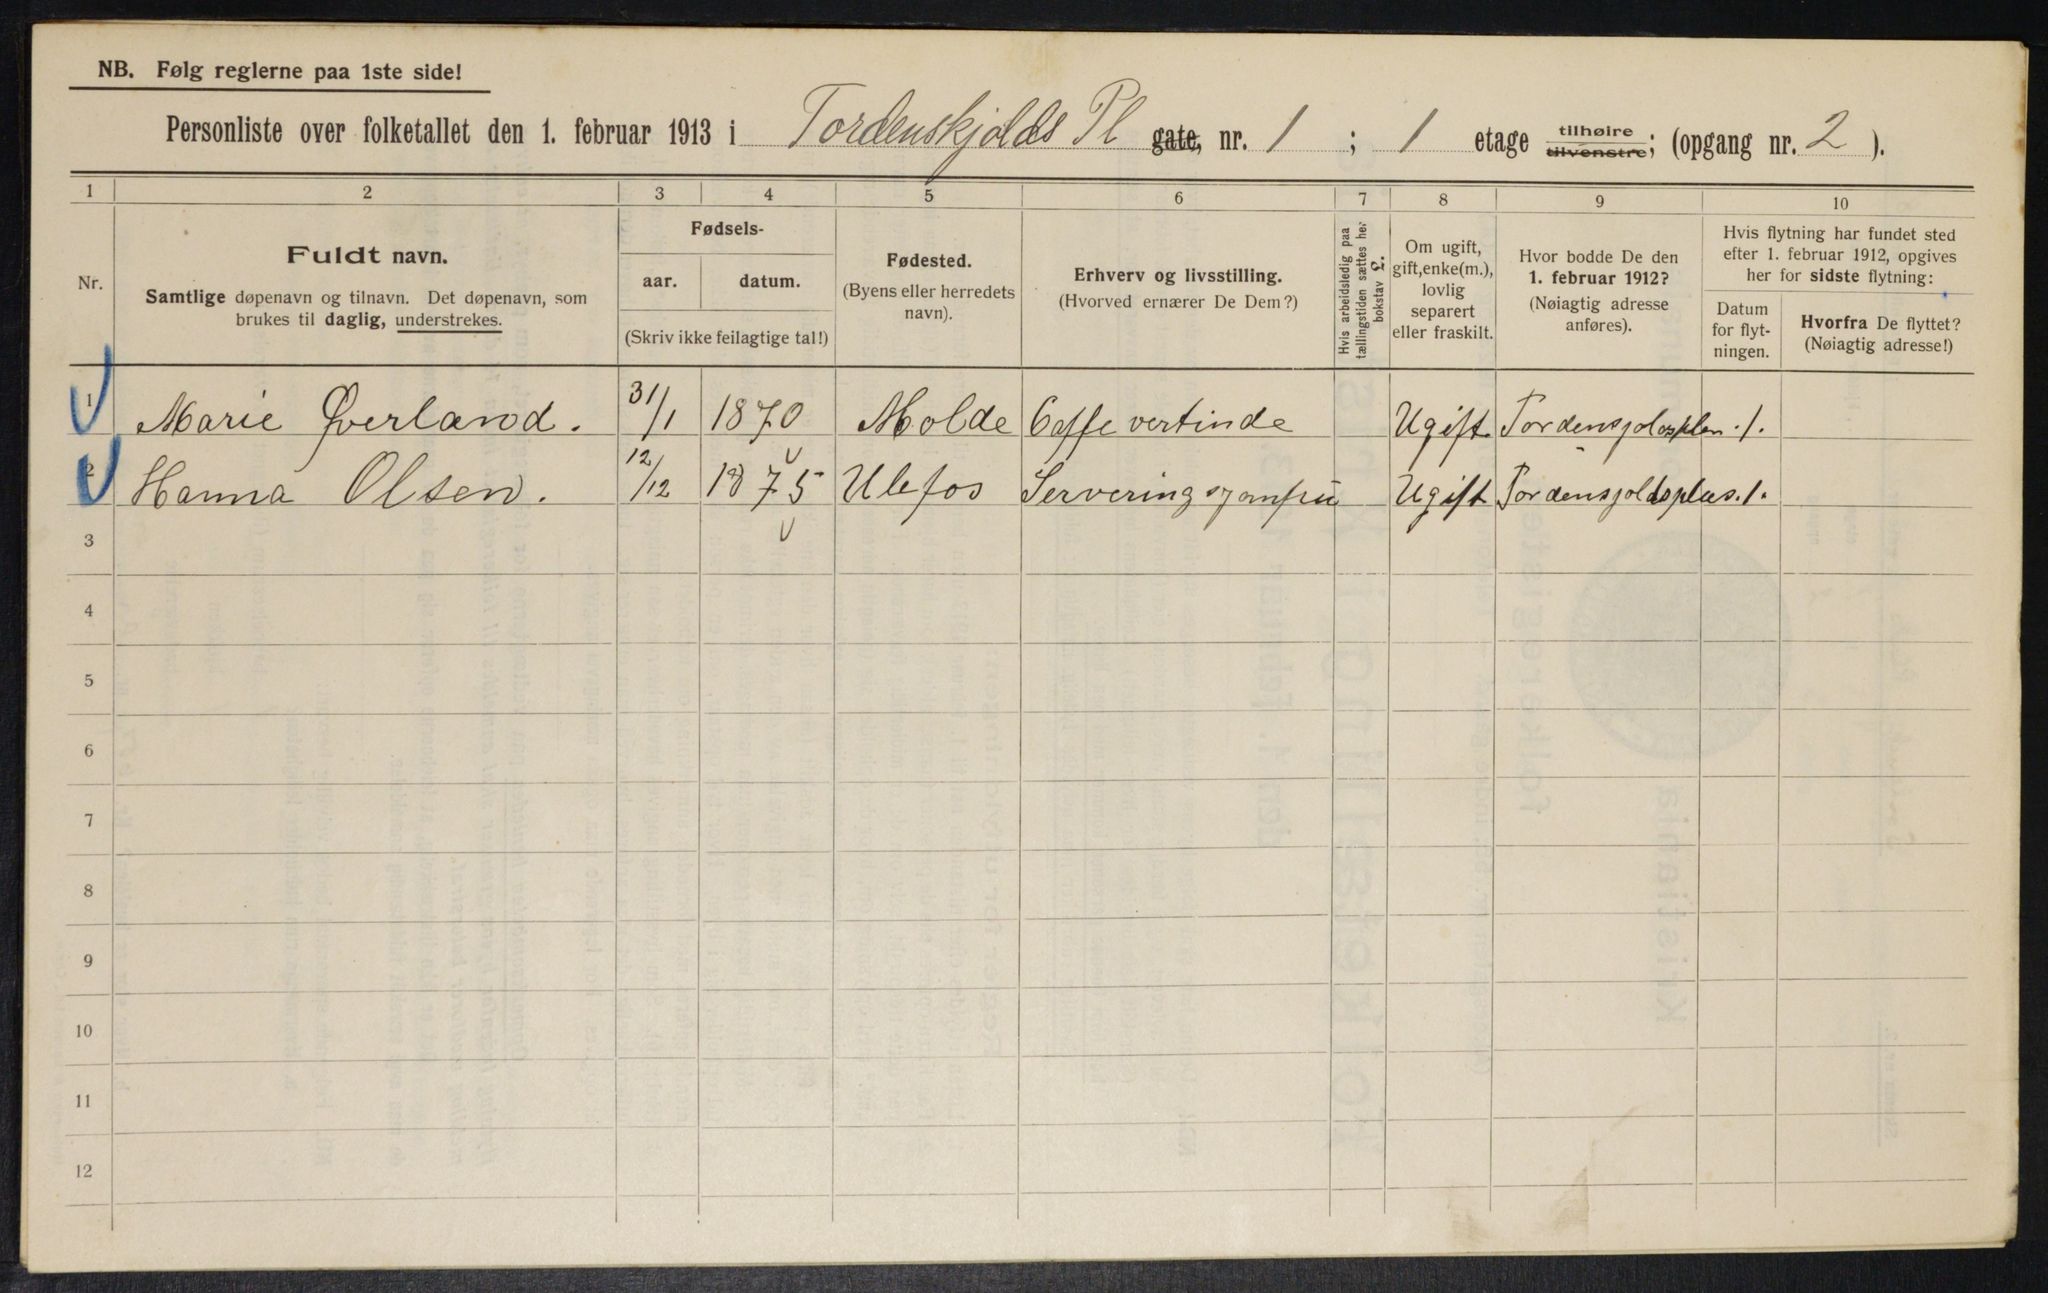 NB. Følg reglerne paa 1ste side!
Personliste over folketallet den 1. februar 1913 i Tordenskjolds Pl gate, nr. 1 ; 1 etage tilhøire tilvenstre; (opgang nr. 2 ).
1 2 3 4 5 6 7 8 9 10
Nr.
Fuldt navn.
Samtlige døpenavn og tilnavn. Det døpenavn, som
brukes til daglig, understrekes.
Fødsels-
aar. datum.
(Skriv ikke feilagtige tal!)
Fødested.
(Byens eller herredets
navn).
Erhverv og livsstilling.
(Hvorved ernærer De Dem?)
Hvis arbeidsledig paa
tællingstiden sættes her
bokstav L.
Om ugift,
gift, enke(m.),
lovlig
separert
eller fraskilt.
Hvor bodde De den
1. februar 1912?
(Nøiagtig adresse
anføres).
Hvis flytning har fundet sted
efter 1. februar 1912, opgives
her for sidste flytning:
Datum
for flyt-
ningen.
Hvorfra De flyttet?
(Nøiagtig adresse!)
1 Marie Øverland. 31/1 1870 Molde Caffe vertinde Ugift Tordensjoldsplen. 1.
2 Hanna Olsen. 12/12 1875 Ulefos Serveringsjomfru Ugift Tordensjoldsplas. 1.
3
4
5
6
7
8
9
10
11
12